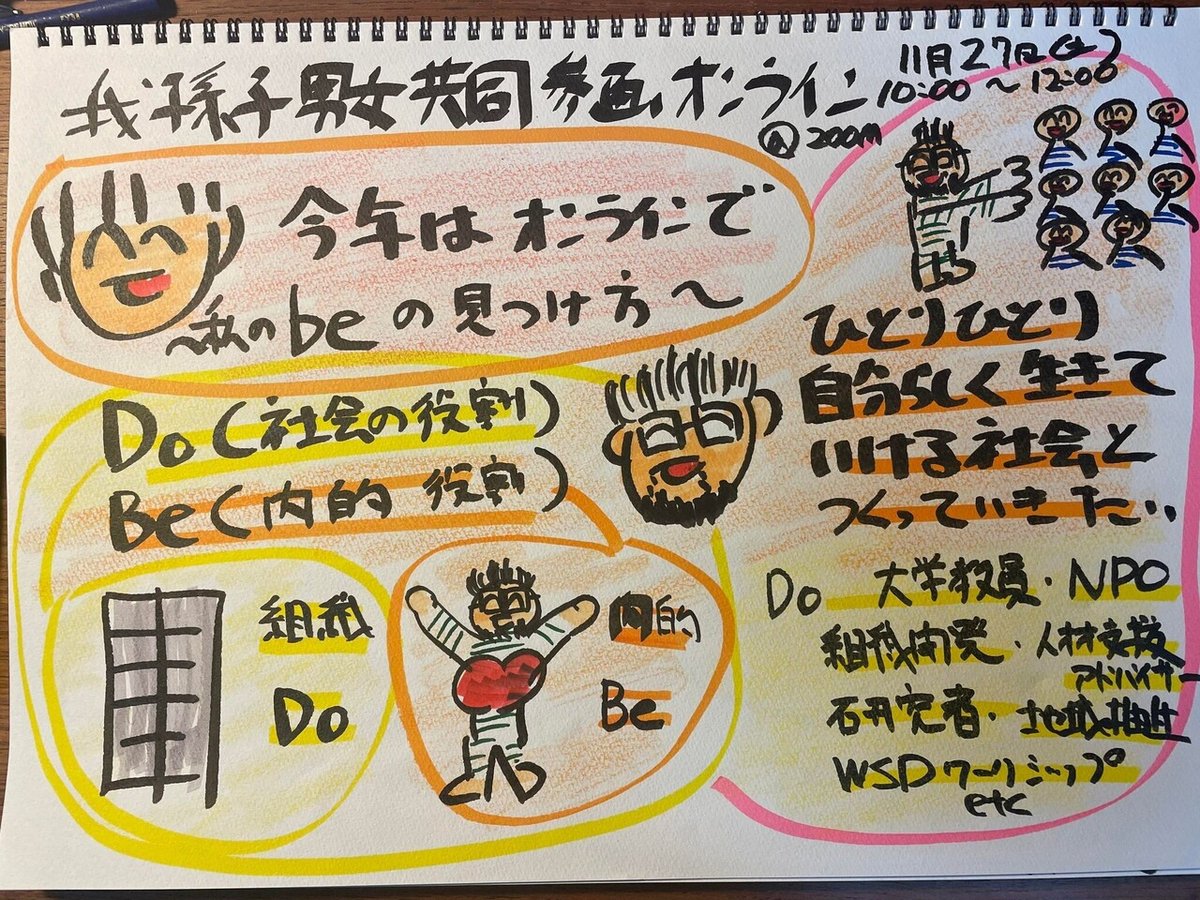 我孫子男女共同参画オンライン
11月27日(土)
10:00〜12:00
@zoom
今年はオンラインで
〜私のbeの見つけ方〜
Do(社会の役割)
Be(内的 役割)
組織
Do
内的
Be
ひとりひとり
自分らしく生きて
いける社会と
つくっていきたい
Do 大学教員・NPO
組織開発・人材支援
アドバイザー
研究者・地域推進
WSDワークショップ
etc